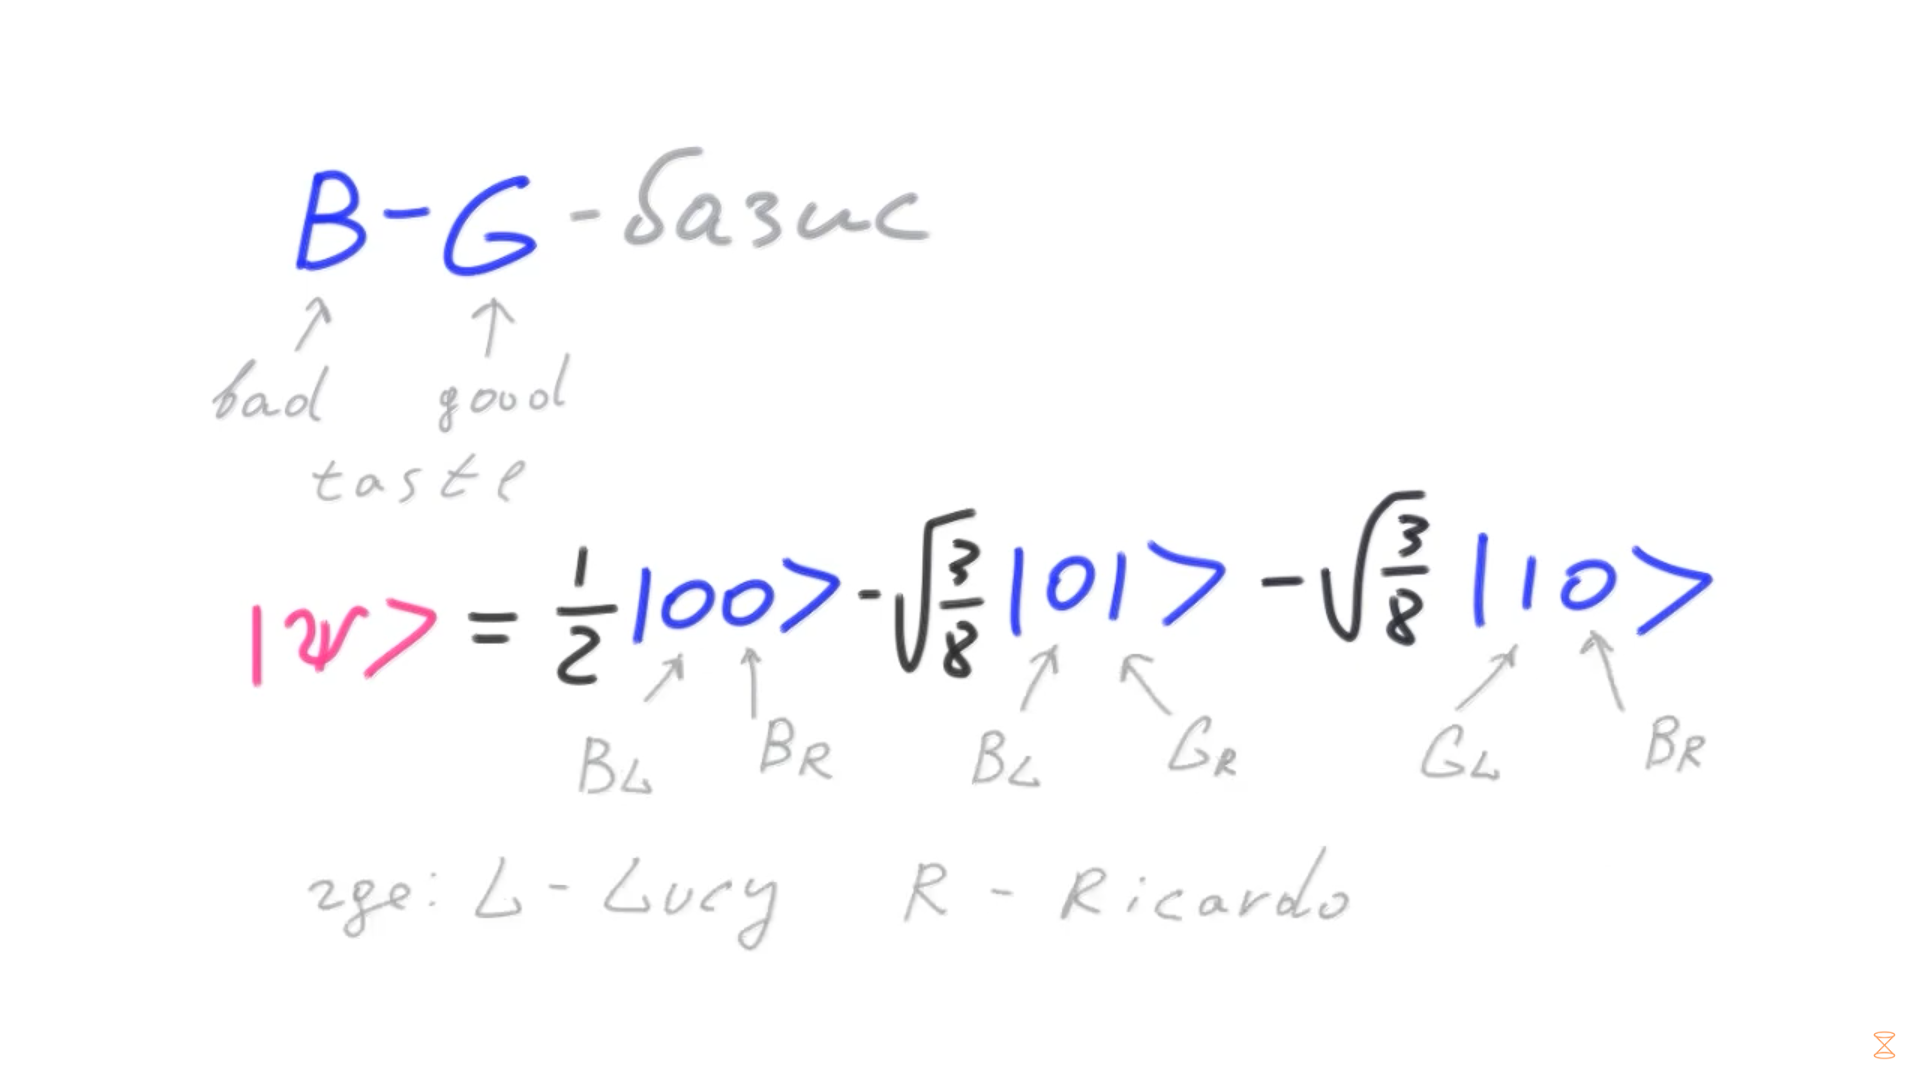 B-G-базис
bad good
taste
|ψ> = 1/2 |00> - √3/8 |01> - √3/8 |10>
BL BR BL GR GL BR
где: L - Lucy R - Ricardo